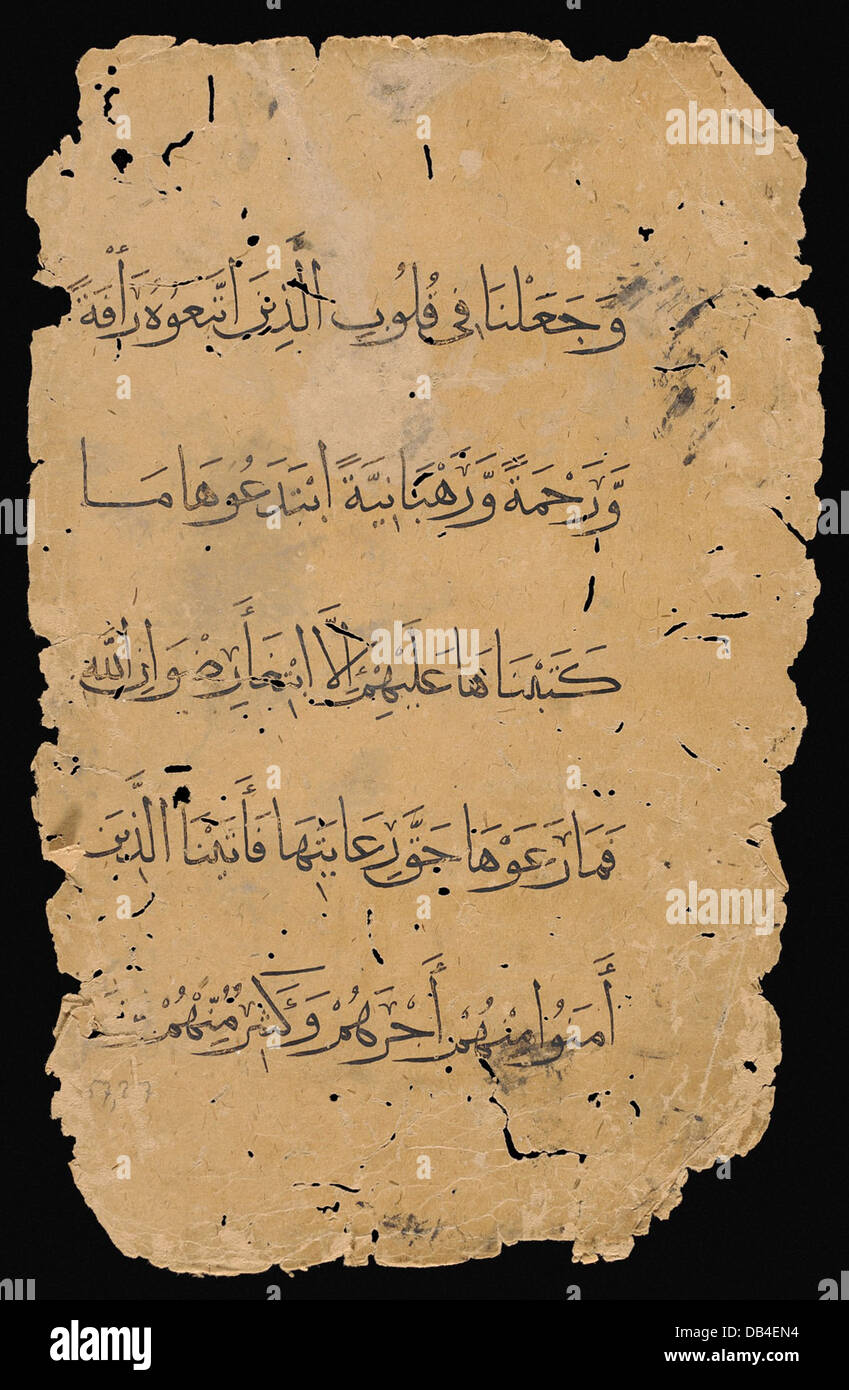 وَجَعَلْنَا فِي قُلُوبِ الَّذِينَ اتَّبَعُوهُ رَأْفَةً
وَّرَحْمَةً وَّرَهْبَانِيَّةً ابْتَدَعُوهَا مَا
كَتَبْنَاهَا عَلَيْهِمْ إِلَّا ابْتِغَاءَ رِضْوَانِ اللَّهِ
فَمَا رَعَوْهَا حَقَّ رِعَايَتِهَا فَأَتَيْنَا الَّذِينَ
أَمَنُوا مِنْهُمْ أَجْرَهُمْ وَكَثِيرٌ مِّنْهُمْ
57,27
a
alamy
Image ID: DB4EN4
www.alamy.com